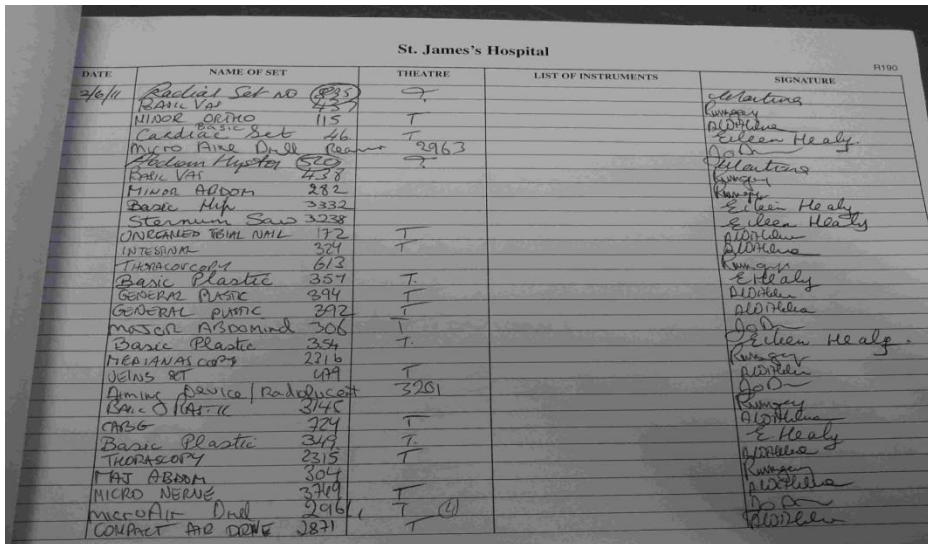 St. James's Hospital
R190
DATE NAME OF SET THEATRE LIST OF INSTRUMENTS SIGNATURE
2/6/11 Radial Set NO 835 Martina
BASIC VAS 437 Rumgey
MINOR ORTHO 115 T
Cardiac Basic Set 46 T Eileen Healy.
Micro Aire Drill Reamer 2963
520 Martina
BASIC VAS 438 Rumgey
MINOR ABDOM 282 Rumgey
Basic Hip 3332 Eileen Healy
Sternum Saw 3238 Eileen Healy
UNREAMED TIBIAL NAIL 172 T
INTESTINAL 324 T
THORACOSCOPY 613 Rumgey
Basic Plastic 357 T. E Healy
GENERAL PLASTIC 394 T
GENERAL PLASTIC 392 T
MAJOR ABDOMINAL 306 T
Basic Plastic 354 T. Eileen Healy.
MEDIANASCOPY 2316 Rumgey
VEINS SET 479 T
Aiming Device / Radiolucent 3201
BASIC PLASTIC 3145 Rumgey
CABG 724 T
Basic Plastic 349 T. E Healy
THORASCOPY 2315 T
MAJ ABDOM 304 Rumgey
MICRO NERVE 3749 T
MicroAir Drill 2961 T (4)
COMPACT AIR DRIVE 2871 T